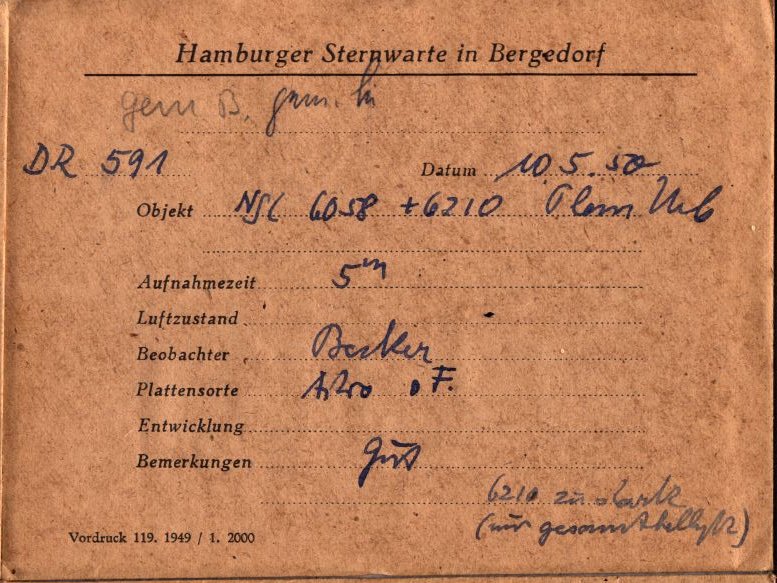 Hamburger Sternwarte in Bergedorf
gem B. gem. in
DR 591 Datum 10.5.50
Objekt NGC 6058 + 6210 Plan Neb
Aufnahmezeit 5m
Luftzustand
Beobachter Becker
Plattensorte Astro o F.
Entwicklung
Bemerkungen Gut
6210 zu stark
(nur gesamthelligk)
Vordruck 119. 1949 / 1. 2000